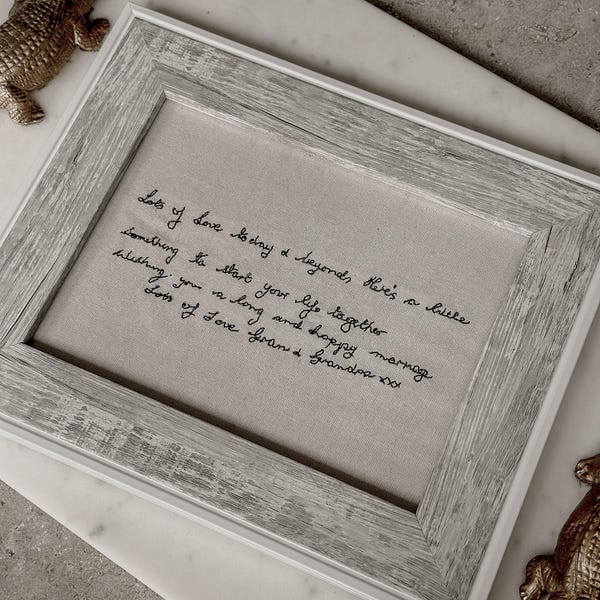 Lots of Love today & beyond, Here's a little
something to start your life together
Wishing you a long and happy marriage
Lots of Love Gran & Grandpa xx